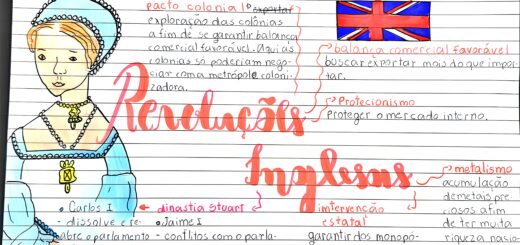 pacto colonial
exploração das colônias
a fim de se garantir balança
comercial favorável. Aqui as
colônias só poderiam nego-
ciar com a metrópole coloni-
zadora.
balança comercial favorável
buscar exportar mais do que impor-
tar.
Protecionismo
Proteger o mercado interno.
Revoluções
Inglesas
metalismo
acumulação
de metais pre-
ciosos a fim
de ter muita
riqueza naci
intervenção
estatal
garantir dos monopó-
dinastia Stuart
• Jaime I
- conflitos com o parla-
• Carlos I
- dissolve e re-
abre o parlamento